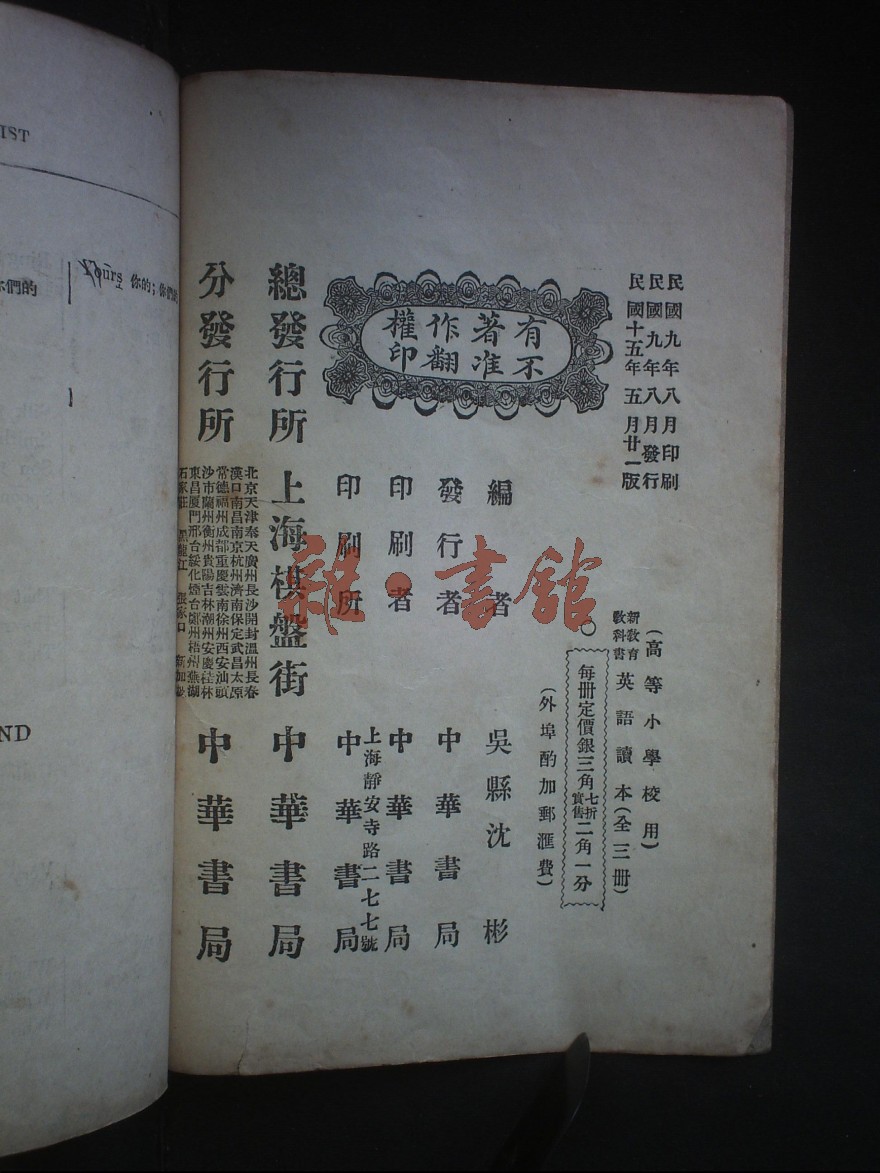 IST
Yours 你的；你們的
們的
ND
民國九年八月印刷
民國九年八月發行
民國十五年五月廿一版
有著作權
不准翻印
(高等小學校用)
新教育教科書 英語讀本(全三冊)
每册定價銀三角七折實售二角一分
(外埠酌加郵滙費)
編者 吳縣沈彬
發行者 中華書局
印刷者 中華書局
上海靜安寺路二七七號
印刷所 中華書局
總發行所 上海棋盤街 中華書局
北京天津奉天廣州長沙開封溫州長春
漢口南昌南京杭州濟南保定武昌太原
常德福州成都重慶雲南徐州西安汕頭
沙市蘭州衡州貴陽吉林潮州安慶桂林
東昌厦門邢台綏化煙台鄭州梧州蕪湖
石家莊 黑龍江 張家口 新加坡
分發行所 中華書局
雜·書館